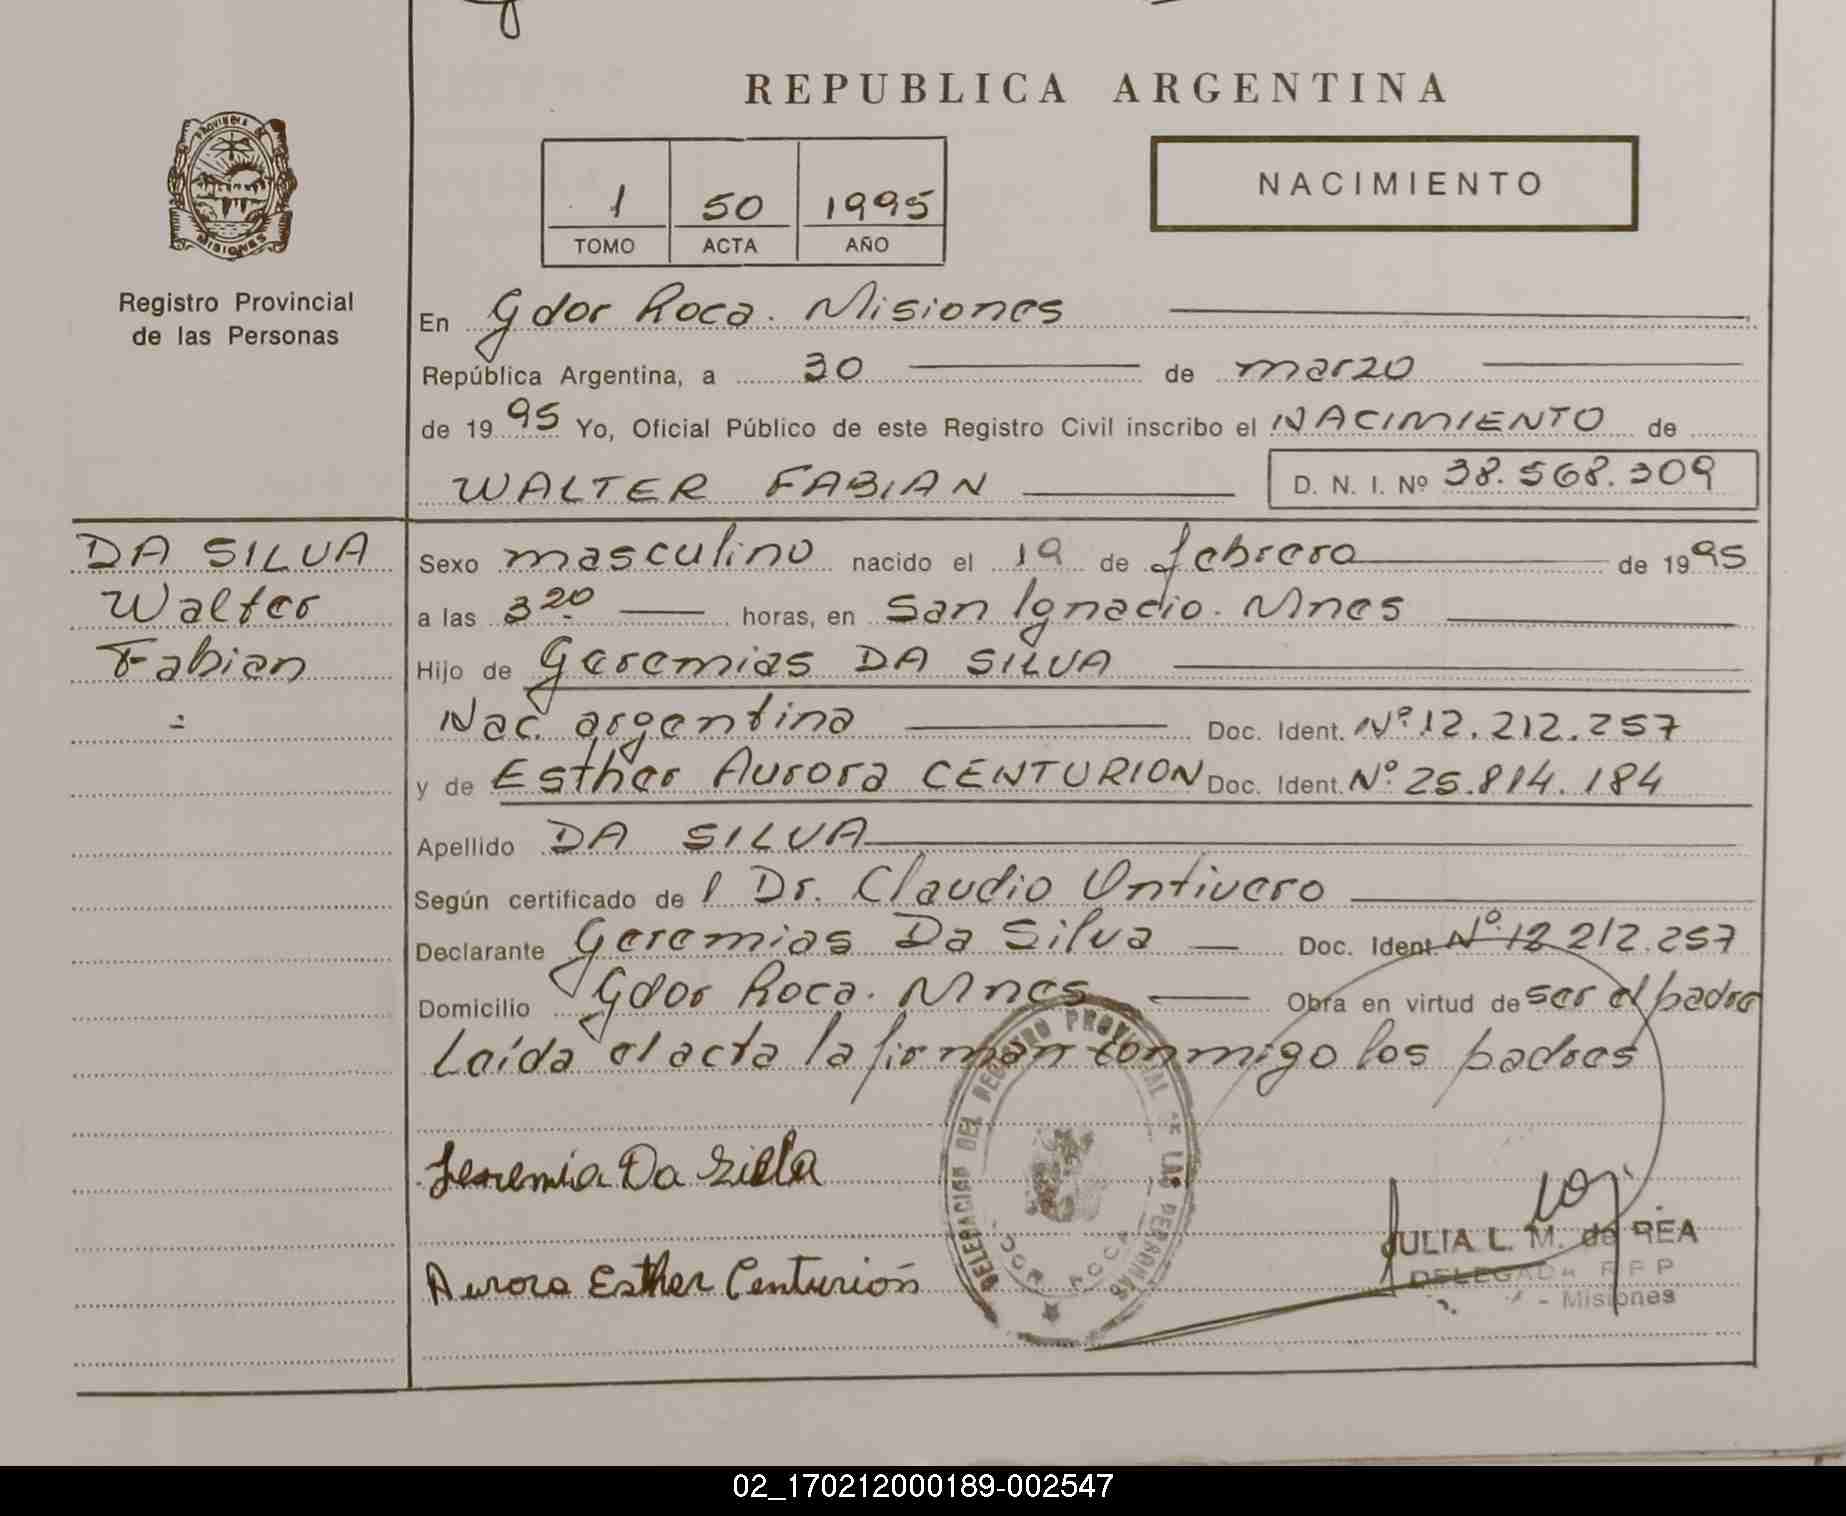 REPUBLICA ARGENTINA
PROVINCIA DE
MISIONES
Registro Provincial
de las Personas
1 50 1995
TOMO ACTA AÑO
NACIMIENTO
En Gdor Roca. Misiones
República Argentina, a 30 de marzo
de 1995 Yo, Oficial Público de este Registro Civil inscribo el NACIMIENTO de
WALTER FABIAN D. N. I. Nº 38.568.309
DA SILVA
Walter
Fabian
Sexo masculino nacido el 19 de febrero de 1995
a las 3 20 horas, en San Ignacio. Mnes
Hijo de Geremias DA SILVA
Nac. argentina Doc. Ident. Nº 12.212.257
y de Esther Aurora CENTURION Doc. Ident. Nº 25.814.184
Apellido DA SILVA
Según certificado de l Dr. Claudio Untivero
Declarante Geremias Da Silva Doc. Ident. Nº 12 212.257
Domicilio Gdor Roca. Mnes Obra en virtud de ser el padre
Leída el acta la firman conmigo los padres
DELEGACION DEL REGISTRO PROVINCIAL DE LAS PERSONAS
GOR ROCA
Jeremia Da Silla
Aurora Esther Centurión
JULIA L. M. de REA
DELEGADA R P P
- Misiones
02_170212000189-002547